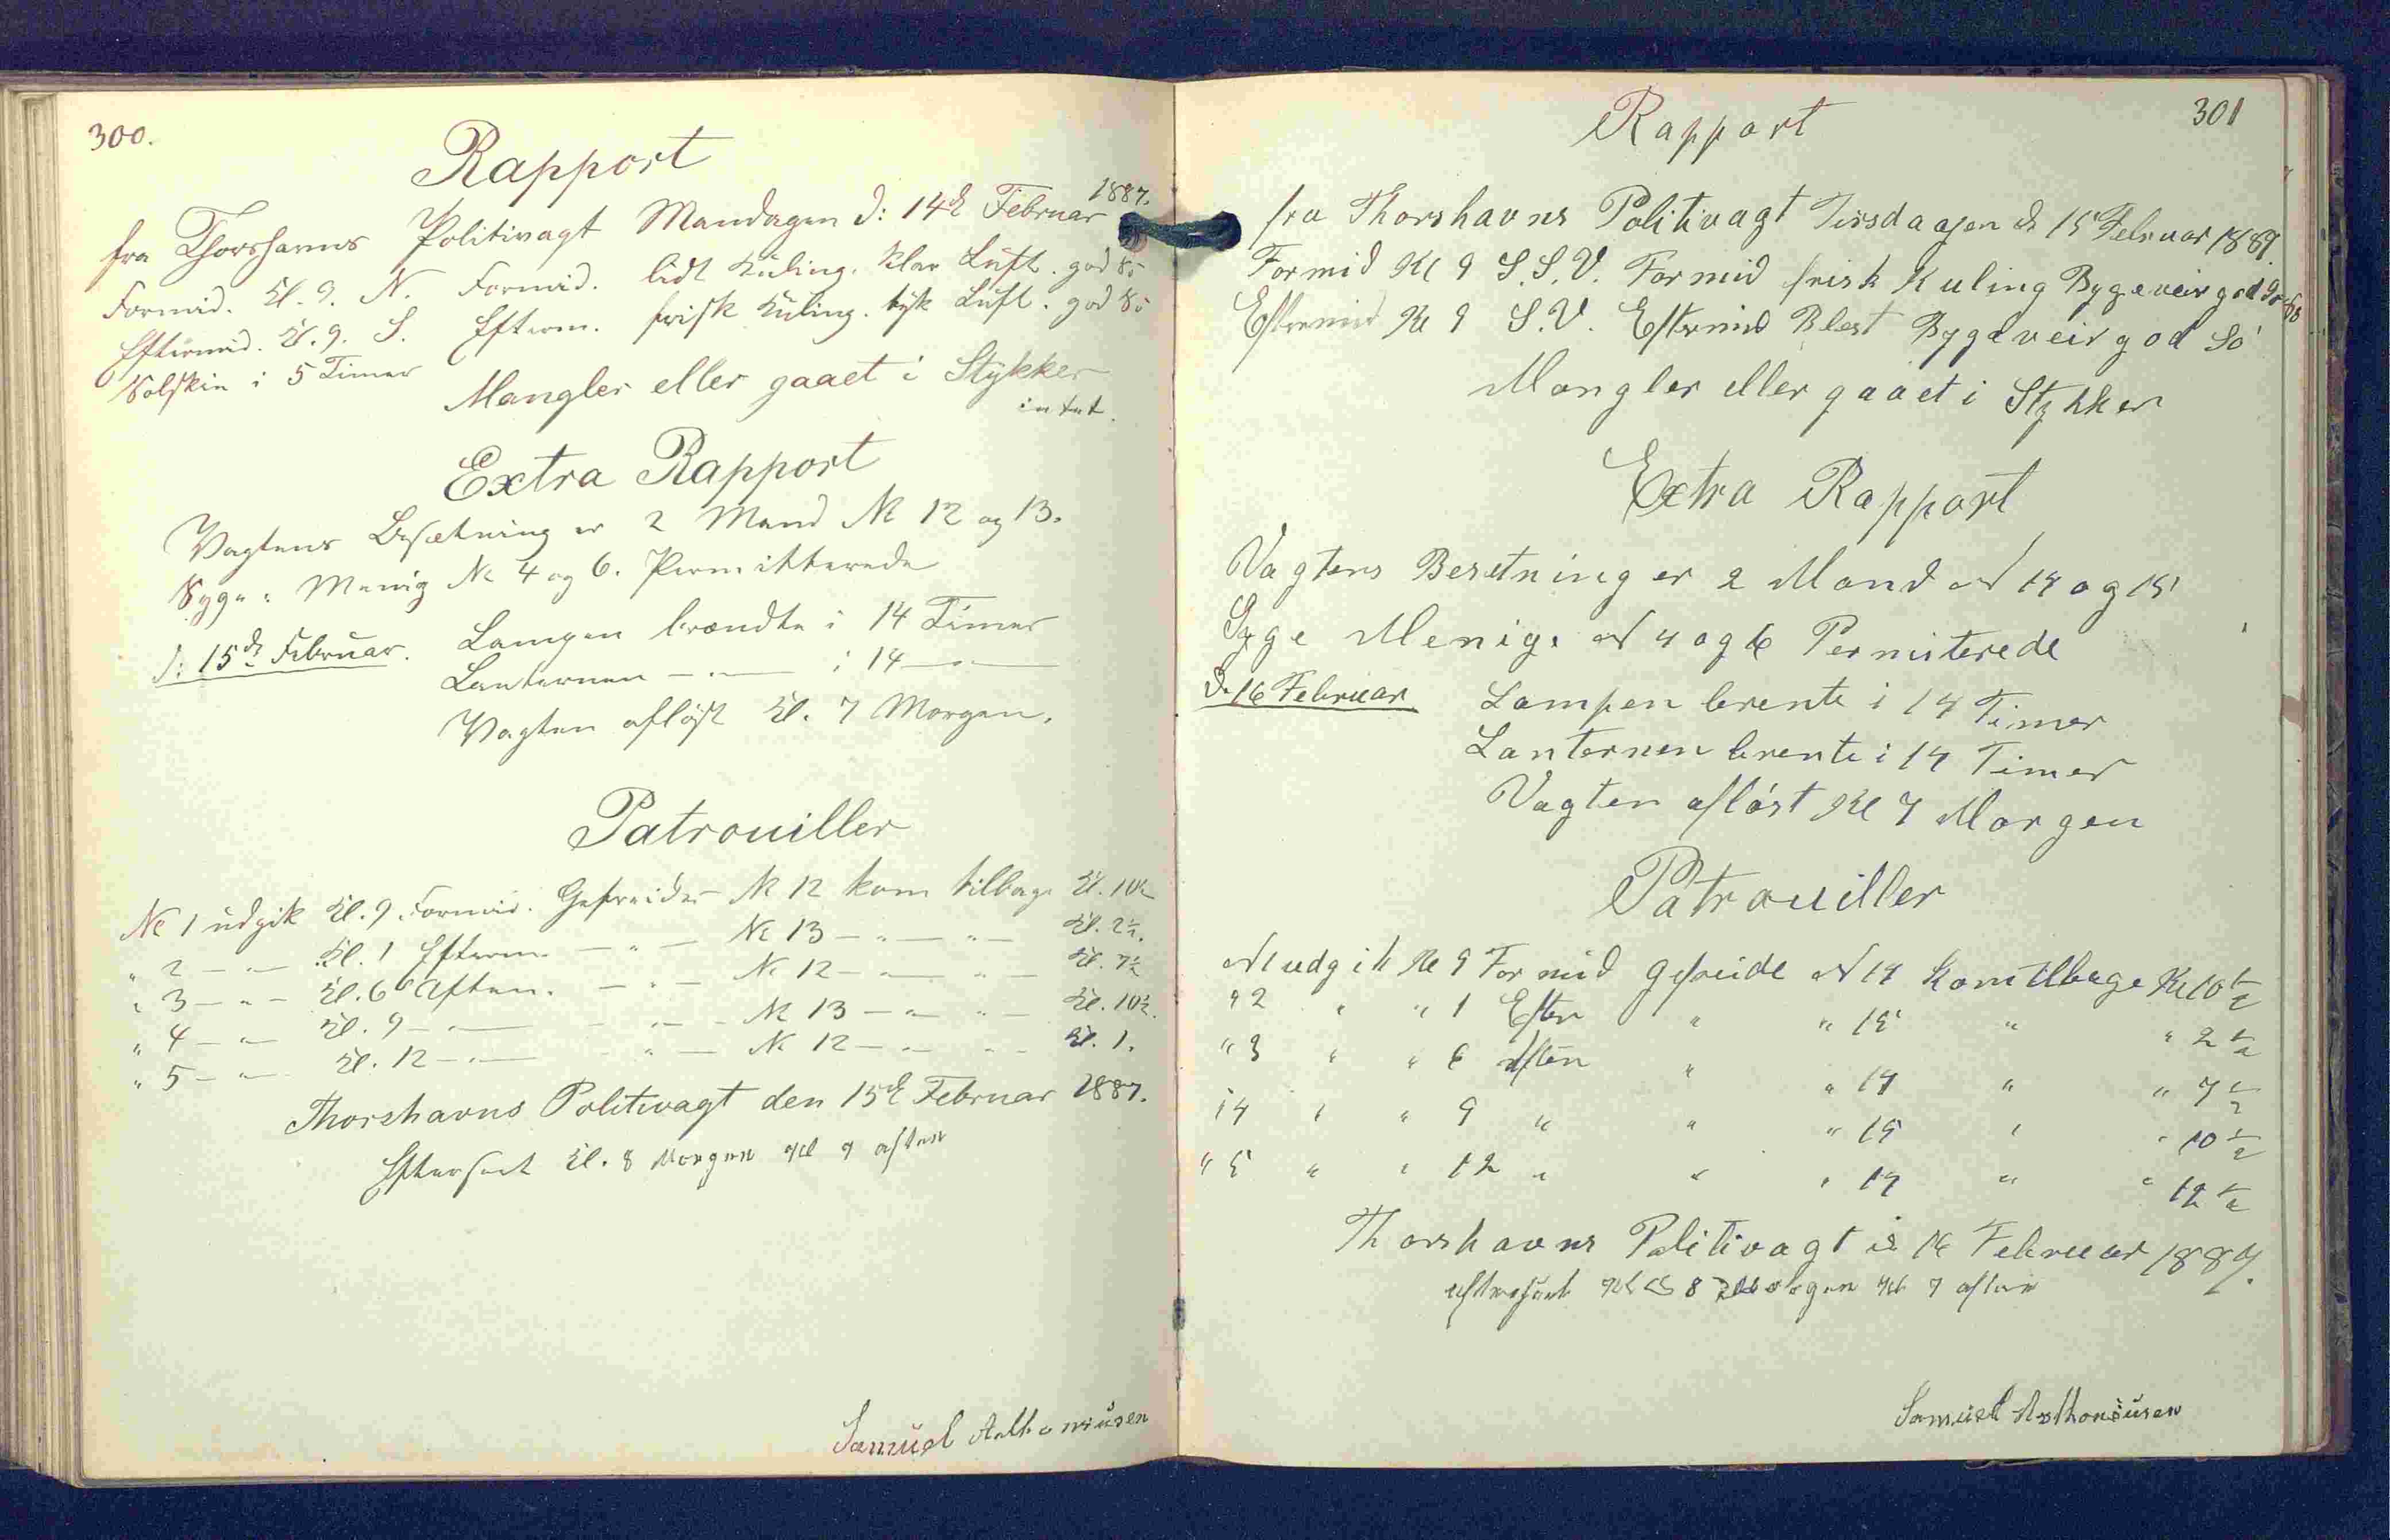 300.
Rapport
fra Thorshavns Politivagt Mandagen d: 14de Februar 1887.
Formid. Kl. 9. N. Formid. lidt Kuling. klar Luft. god Sö
Eftermid. Kl. 9. S. Efterm. frisk Kuling. tyk Luft. god Sö
Solskin i 5 Timer
Mangler eller gaaet i Stykker
intet.
Extra Rapport
Vagtens Besætning er 2 Mand No 12 og 13.
Syge: Menig No 4 og 6. Permitterede
d: 15de Februar. Lampen brændte i 14 Timer
Lanternen — " — i 14 — " —
Vagten aflöst Kl. 7 Morgen.
Patrouiller
No 1 udgik Kl. 9. Formid. Gefreider No 12 kom tilbage Kl. 10½
" 2 — " — Kl. 1 Efterm. — " — No 13 — " — " — Kl. 2½.
" 3 — " — Kl. 6 Aften. — " — No 12 — " — " — Kl. 7½
" 4 — " — Kl. 9 — " — — " — No 13 — " — " — Kl. 10½.
" 5 — " — Kl. 12 — " — — " — No 12 — " — " — Kl. 1.
Thorshavns Politivagt den 15de Februar 1887.
Efterseet Kl. 8 Morgen Kl 9 aften
Samuel
301
Rapport
fra Thorshavns Politivagt Tirsdagen d 15 Februar 1887.
Formid Kl 9 S.S.V. Formid frisk Kuling Bygeveir god Sö
Eftermid Kl 9 S.V. Eftermid Blest Bygeveir god Sö
Mangler eller gaaet i Stykker
Extra Rapport
Vagtens Besetning er 2 Mand N 14 og 15
Syge Menige N 4 og 6 Permiterede
D. 16 Februar Lampen brente i 14 Timer
Lanternen brente i 14 Timer
Vagten aflöst Kl 7 Morgen
Patrouiller
N1 udgik Kl 9 Formid gefreide N 14 kom tilbage Kl 10 ½
" 2 " " 1 Efter " " 15 " " 2 ½
" 3 " " 6 Aften " " 14 " " 7 ½
" 4 " " 9 " " " 15 " " 10 ½
" 5 " " 12 " " " 14 " " 12 ½
Thorshavns Politivagt d 16 Februar 1887.
efterseet Kl 8 Morgen Kl 9 aften
Samuel